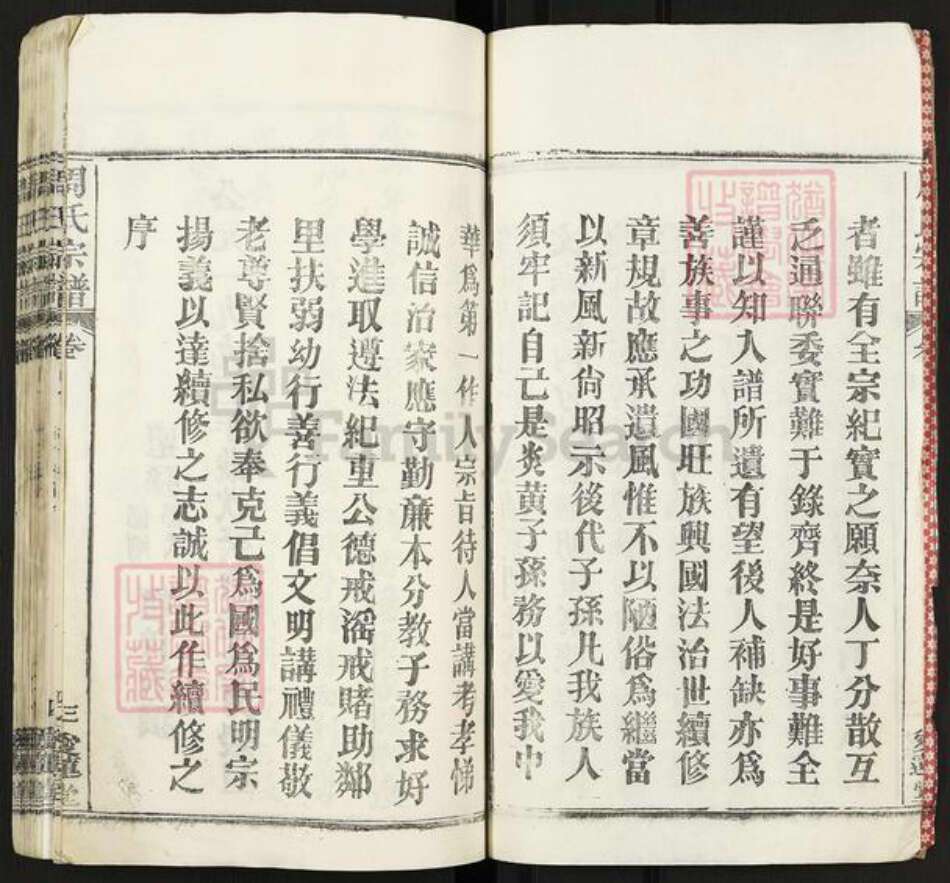 者雖有全宗紀實之願奈人丁分散互
乏通聯委實難于錄齊終是好事難全
謹以知入譜所遺有望後人補缺亦為
善族事之功國旺族興國法治世續修
章規故應承遺風惟不以陋俗為繼當
以新風新尙昭示後代子孫凡我族人
須牢記自己是炎黃子孫務以愛我中
華為第一作人宗旨待人當講考孝悌
誠信治家應守勤廉本分教子務求好
學進取遵法紀重公德戒滛戒賭助鄰
里扶弱幼行善行義倡文明講禮儀敬
老尊賢捨私欲奉克己為國為民明宗
揚義以達續修之志誠以此作續修之
序
周氏宗譜
卷
三
愛蓮堂
FamilySearch